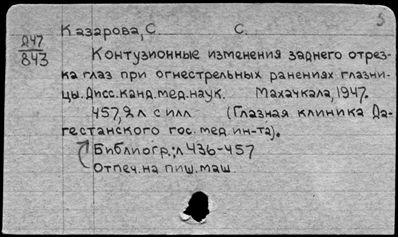 5
Казарова, С. С.
Д47
843
Контузионные изменения заднего отрез-
ка глаз при огнестрельных ранениях глазни-
цы. Дисс. канд. мед. наук. Махачкала, 1947.
457,2 л с илл (Глазная клиника Да-
гестанского гос. мед. ин-та).
Библиогр.: л 436-457
Отпеч. на пиш. маш.